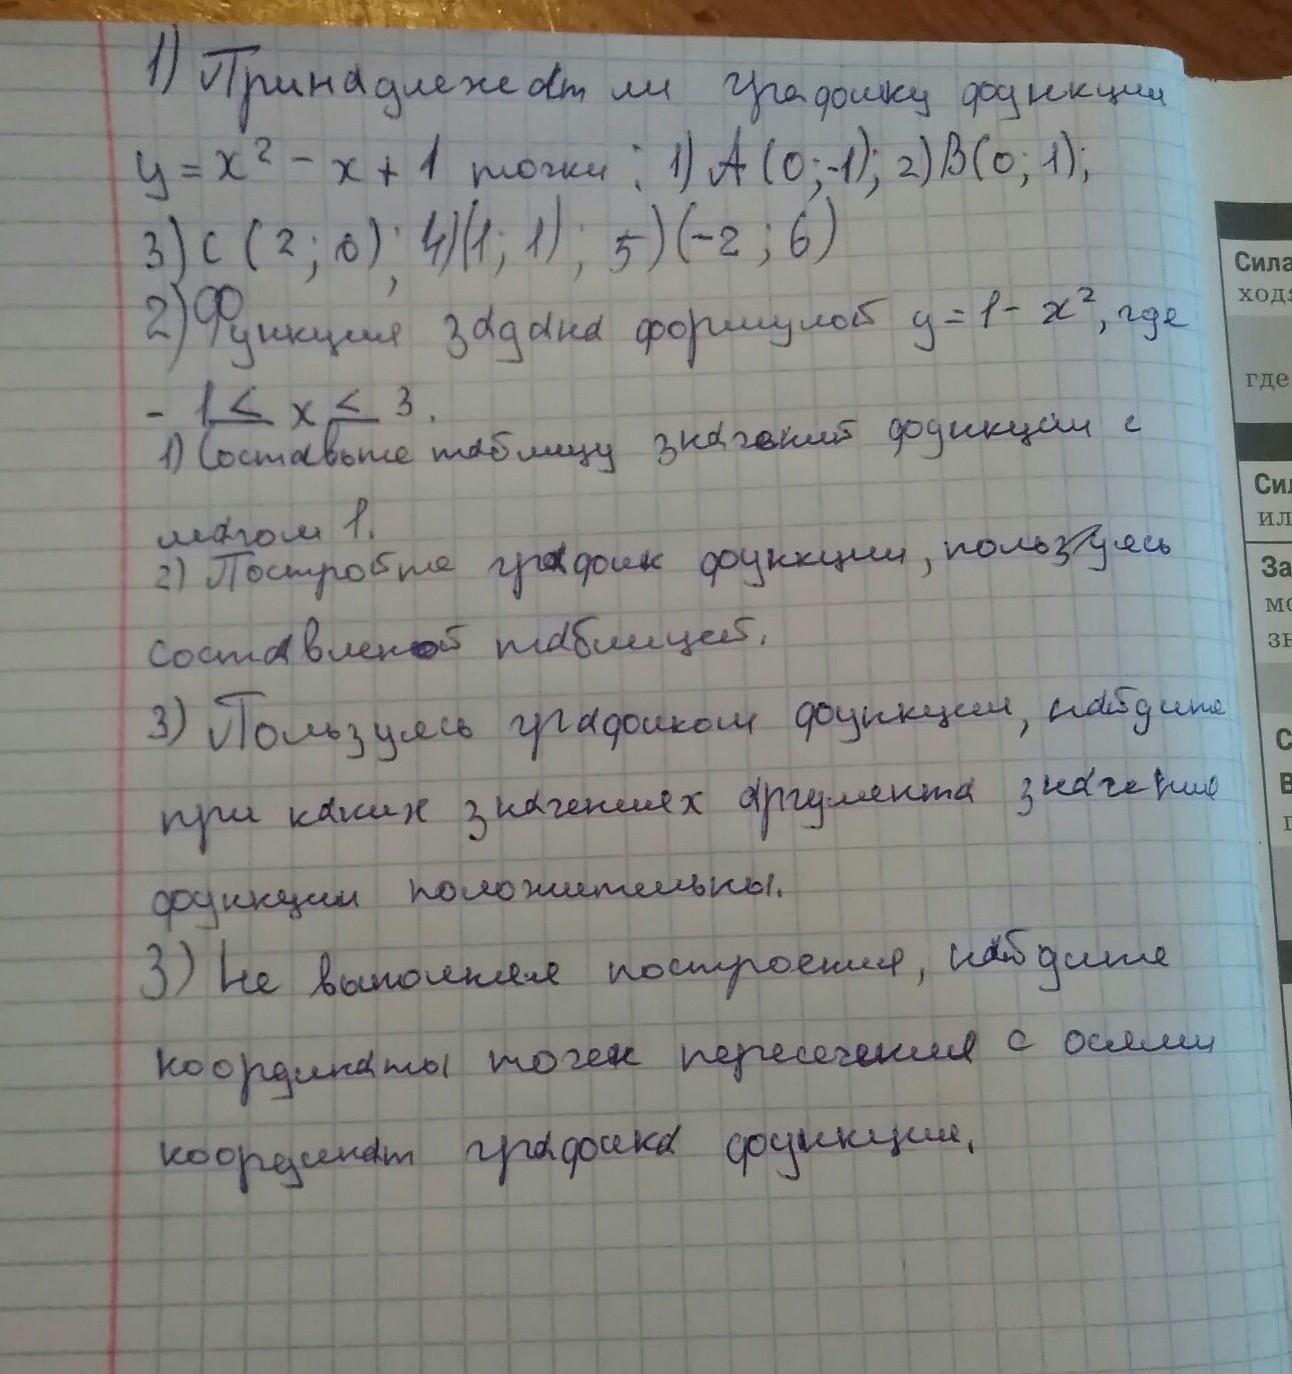 1) Принадлежат ли графику функции
y = x² - x + 1 точки: 1) A (0; -1); 2) B(0; 1);
3) C (2; 0); 4)(1; 1); 5) (-2; 6)
2) Функция задана формулой y = 1 - x², где
- 1 ≤ x ≤ 3.
1) Составьте таблицу значений функции с
шагом 1.
2) Постройте график функции, пользуясь
составленой таблицей.
3) Пользуясь графиком функции, найдите
при каких значениях аргумента значение
функции положительны.
3) Не выполняя построения, найдите
координаты точек пересечения с осями
координат графика функции.
Сила
ходя
где
Сил
ил
За
мо
зн
С
В